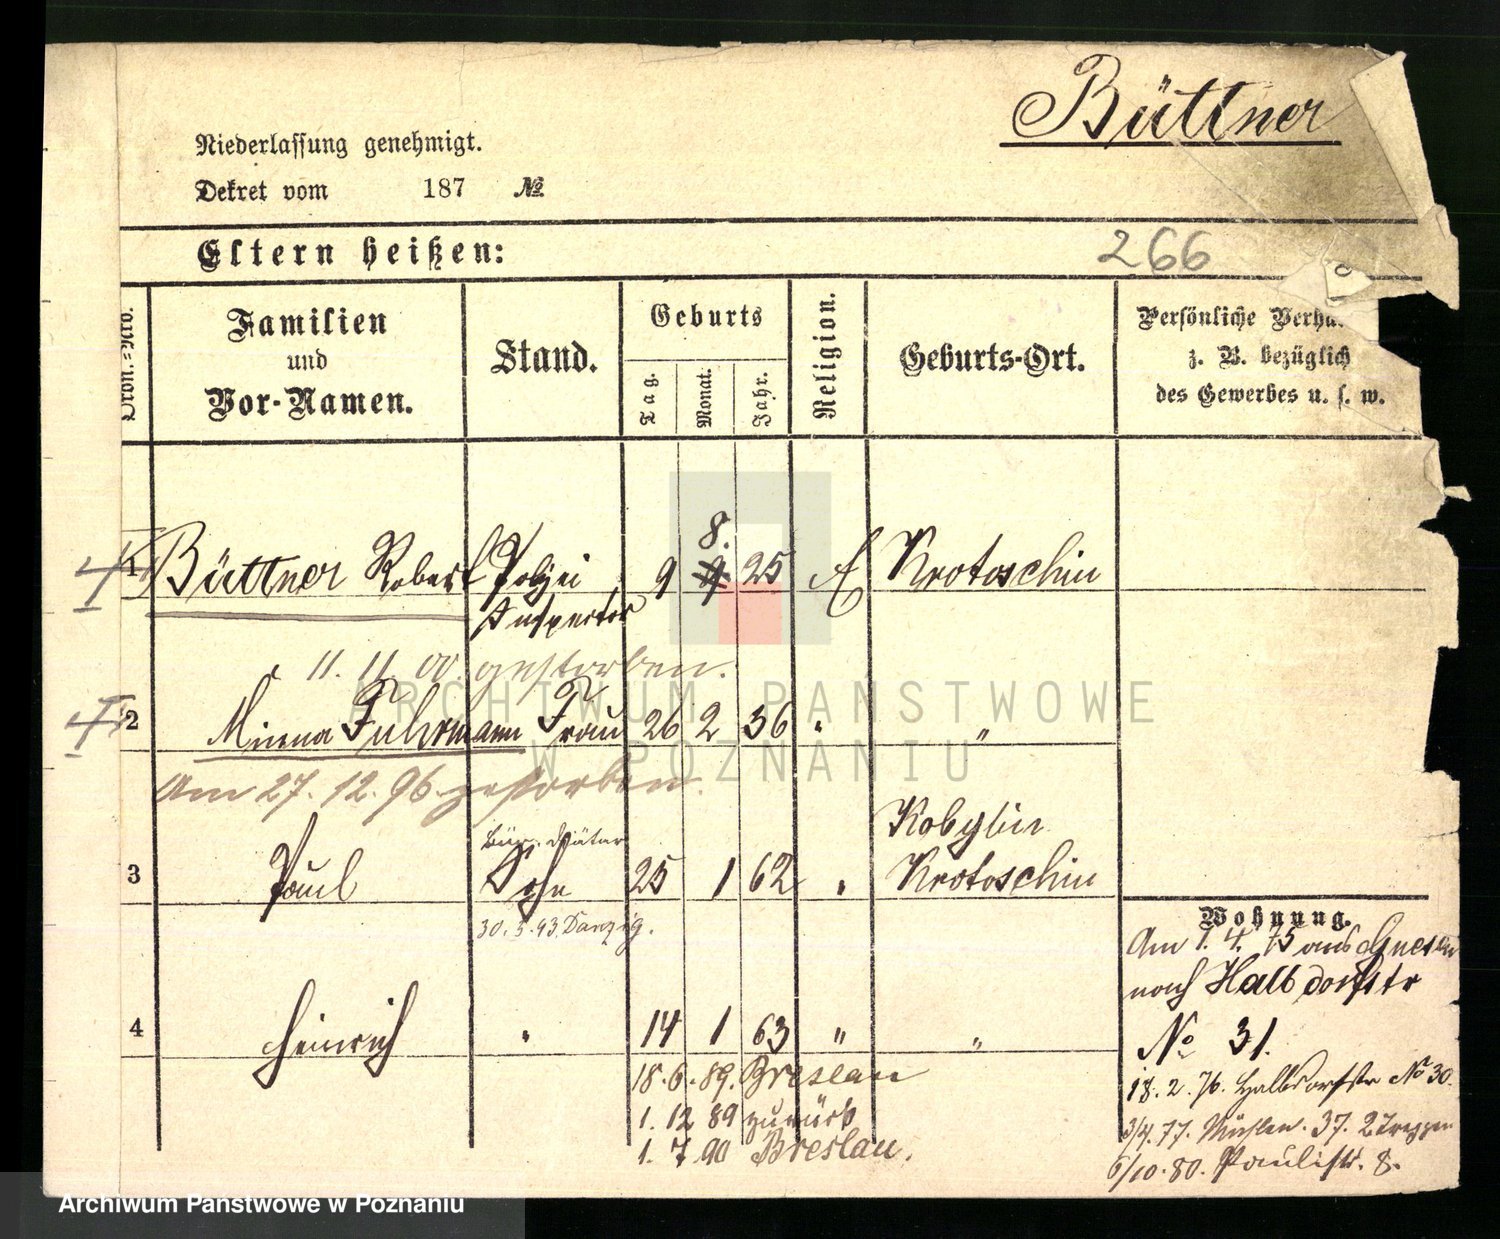 Büttner
Niederlassung genehmigt.
Dekret vom 187 №
Eltern heißen:
266
Ordn.-Nro.
Familien
und
Vor-Namen.
Stand.
Geburts
Tag.
Monat.
Jahr.
Religion.
Geburts-Ort.
Persönliche
z. B. bezüglich
des Gewerbes u. s. w.
8.
1 Büttner Robert Polizei 9 9 25 Krotoschin
Inspector
11. 11. 00. gestorben.
2 Minna Fuhrmann Frau 26 2 36 " "
Am 27. 12. 96. gestorben.
Kobylin
3 Paul Sohn 25 1 62 " Krotoschin
30. 3. 93. Danzig.
4 Heinrich " 14 1 63 " "
18. 6. 89. Breslau
1. 12 89 zurück
1. 7. 90 Breslau.
Wohnung.
Am 1. 4. 75 aus Gnesen
nach Halbdorfstr
No 31.
18. 2. 76. Halbdorfstr No 30.
3/4. 77. Mühlen. 37. 2 Treppen
6/10. 80. Paulistr. 8.
ARCHIWUM PAŃSTWOWE
W POZNANIU
Archiwum Państwowe w Poznaniu